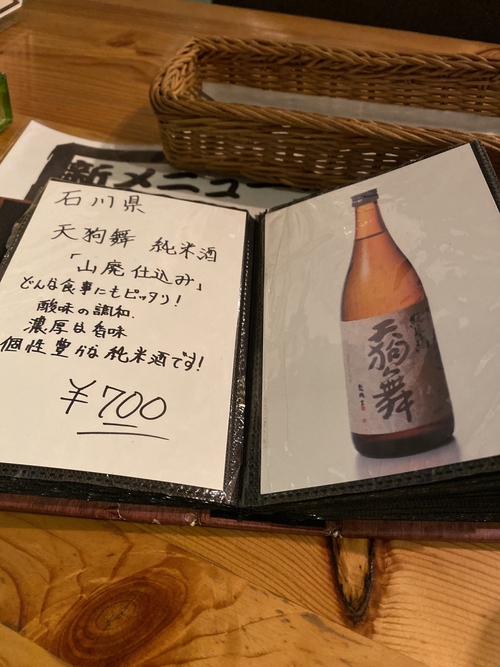 新メニュー
石川県
天狗舞 純米酒
「山廃仕込み」
どんな食事にもピッタリ!
酸味の調和.
濃厚な香味
個性豊かな純米酒です!
¥700
天狗舞